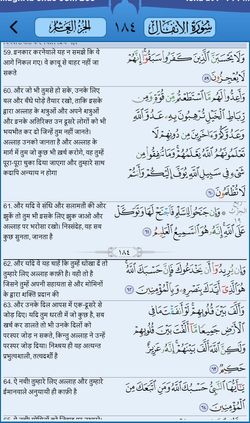 الجزء العاشر
١٨٤
سورة الأنفال
59. इनकार करनेवाले यह न समझे कि वे
आगे निकल गए। वे क़ाबू से बाहर नहीं जा
सकते
وَلَا يَحْسَبَنَّ الَّذِينَ كَفَرُوا سَبَقُوا إِنَّهُمْ
لَا يُعْجِزُونَ ٥٩
60. और जो भी तुमसे हो सके, उनके लिए
बल और बँधे घोड़े तैयार रखो, ताकि इसके
द्वारा अल्लाह के शत्रुओं और अपने शत्रुओं
और इनके अतिरिक्त उन दूसरे लोगों को भी
भयभीत कर दो जिन्हें तुम नहीं जानते।
अल्लाह उनको जानता है और अल्लाह के
मार्ग में तुम जो कुछ भी ख़र्च करोगे, वह तुम्हें
पूरा-पूरा चुका दिया जाएगा और तुम्हारे साथ
कदापि अन्याय न होगा
وَأَعِدُّوا لَهُم مَّا اسْتَطَعْتُم مِّن قُوَّةٍ وَمِن
رِّبَاطِ الْخَيْلِ تُرْهِبُونَ بِهِ عَدُوَّ اللَّهِ
وَعَدُوَّكُمْ وَءَاخَرِينَ مِن دُونِهِمْ لَا
تَعْلَمُونَهُمُ اللَّهُ يَعْلَمُهُمْ وَمَا تُنفِقُوا مِن
شَيْءٍ فِي سَبِيلِ اللَّهِ يُوَفَّ إِلَيْكُمْ وَأَنتُمْ
لَا تُظْلَمُونَ ٦٠
61. और यदि वे संधि और सलामती की ओर
झुकें तो तुम भी इसके लिए झुक जाओ और
अल्लाह पर भरोसा रखो। निस्संदेह, वह सब
कुछ सुनता, जानता है
وَإِن جَنَحُوا لِلسَّلْمِ فَاجْنَحْ لَهَا وَتَوَكَّلْ
عَلَى اللَّهِ إِنَّهُ هُوَ السَّمِيعُ الْعَلِيمُ ٦١
١٨٤
62. और यदि वे यह चाहें कि तुम्हें धोखा दें तो
तुम्हारे लिए अल्लाह काफ़ी है। वही तो है
जिसने तुम्हें अपनी सहायता से और मोमिनों
के द्वारा शक्ति प्रदान की
وَإِن يُرِيدُوا أَن يَخْدَعُوكَ فَإِنَّ حَسْبَكَ اللَّهُ
هُوَ الَّذِي أَيَّدَكَ بِنَصْرِهِ وَبِالْمُؤْمِنِينَ ٦٢
63. और उनके दिल आपस में एक-दूसरे से
जोड़ दिए। यदि तुम धरती में जो कुछ है, सब
खर्च कर डालते तो भी उनके दिलों को
परस्पर जोड़ न सकते, किन्तु अल्लाह ने उन्हें
परस्पर जोड़ दिया। निश्चय ही वह अत्यन्त
प्रभुत्वशाली, तत्वदर्शी है
وَأَلَّفَ بَيْنَ قُلُوبِهِمْ لَوْ أَنفَقْتَ مَا فِي
الْأَرْضِ جَمِيعًا مَّا أَلَّفْتَ بَيْنَ قُلُوبِهِمْ
وَلَٰكِنَّ اللَّهَ أَلَّفَ بَيْنَهُمْ إِنَّهُ عَزِيزٌ
حَكِيمٌ ٦٣
64. ऐ नबी! तुम्हारे लिए अल्लाह और तुम्हारे
ईमानवाले अनुयायी ही काफ़ी है
يَا أَيُّهَا النَّبِيُّ حَسْبُكَ اللَّهُ وَمَنِ اتَّبَعَكَ مِنَ
الْمُؤْمِنِينَ ٦٤